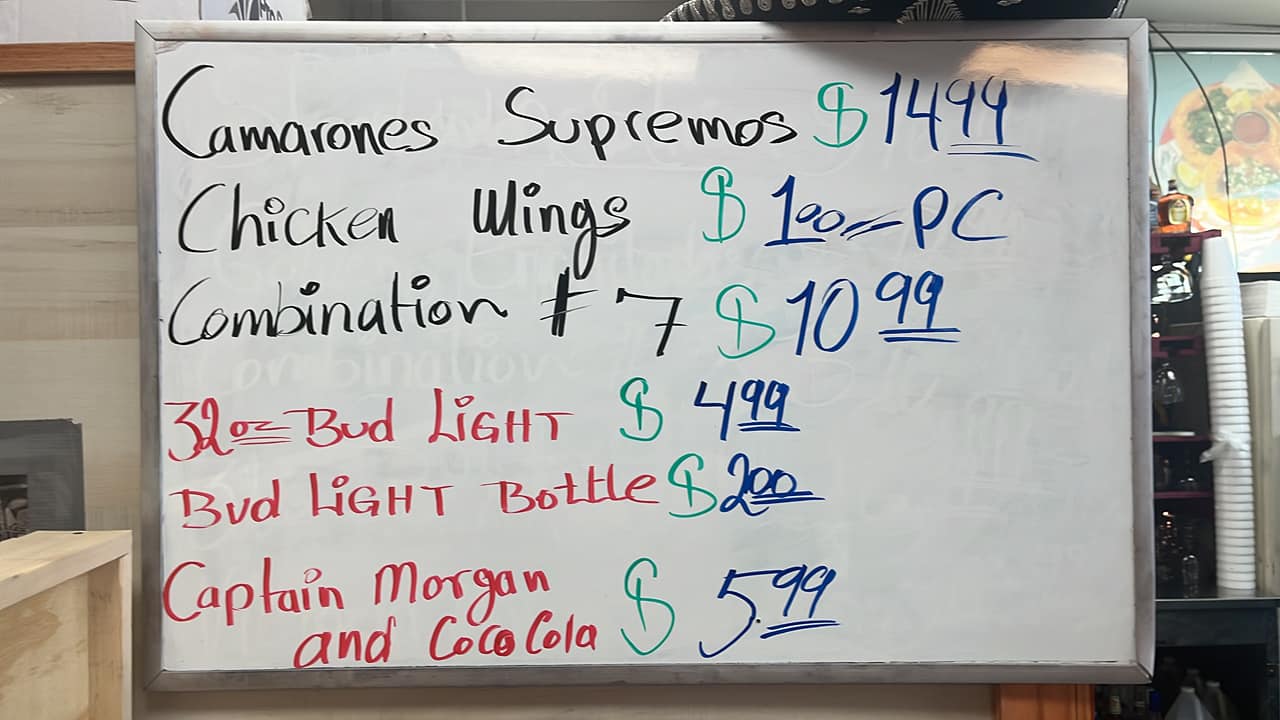 Camarones Supremos $ 1499
Chicken Wings $ 100 PC
Combination # 7 $ 10 99
32oz Bud LiGHT $ 499
Bud LiGHT Bottle $ 200
Captain Morgan
and CocoCola $ 5.99